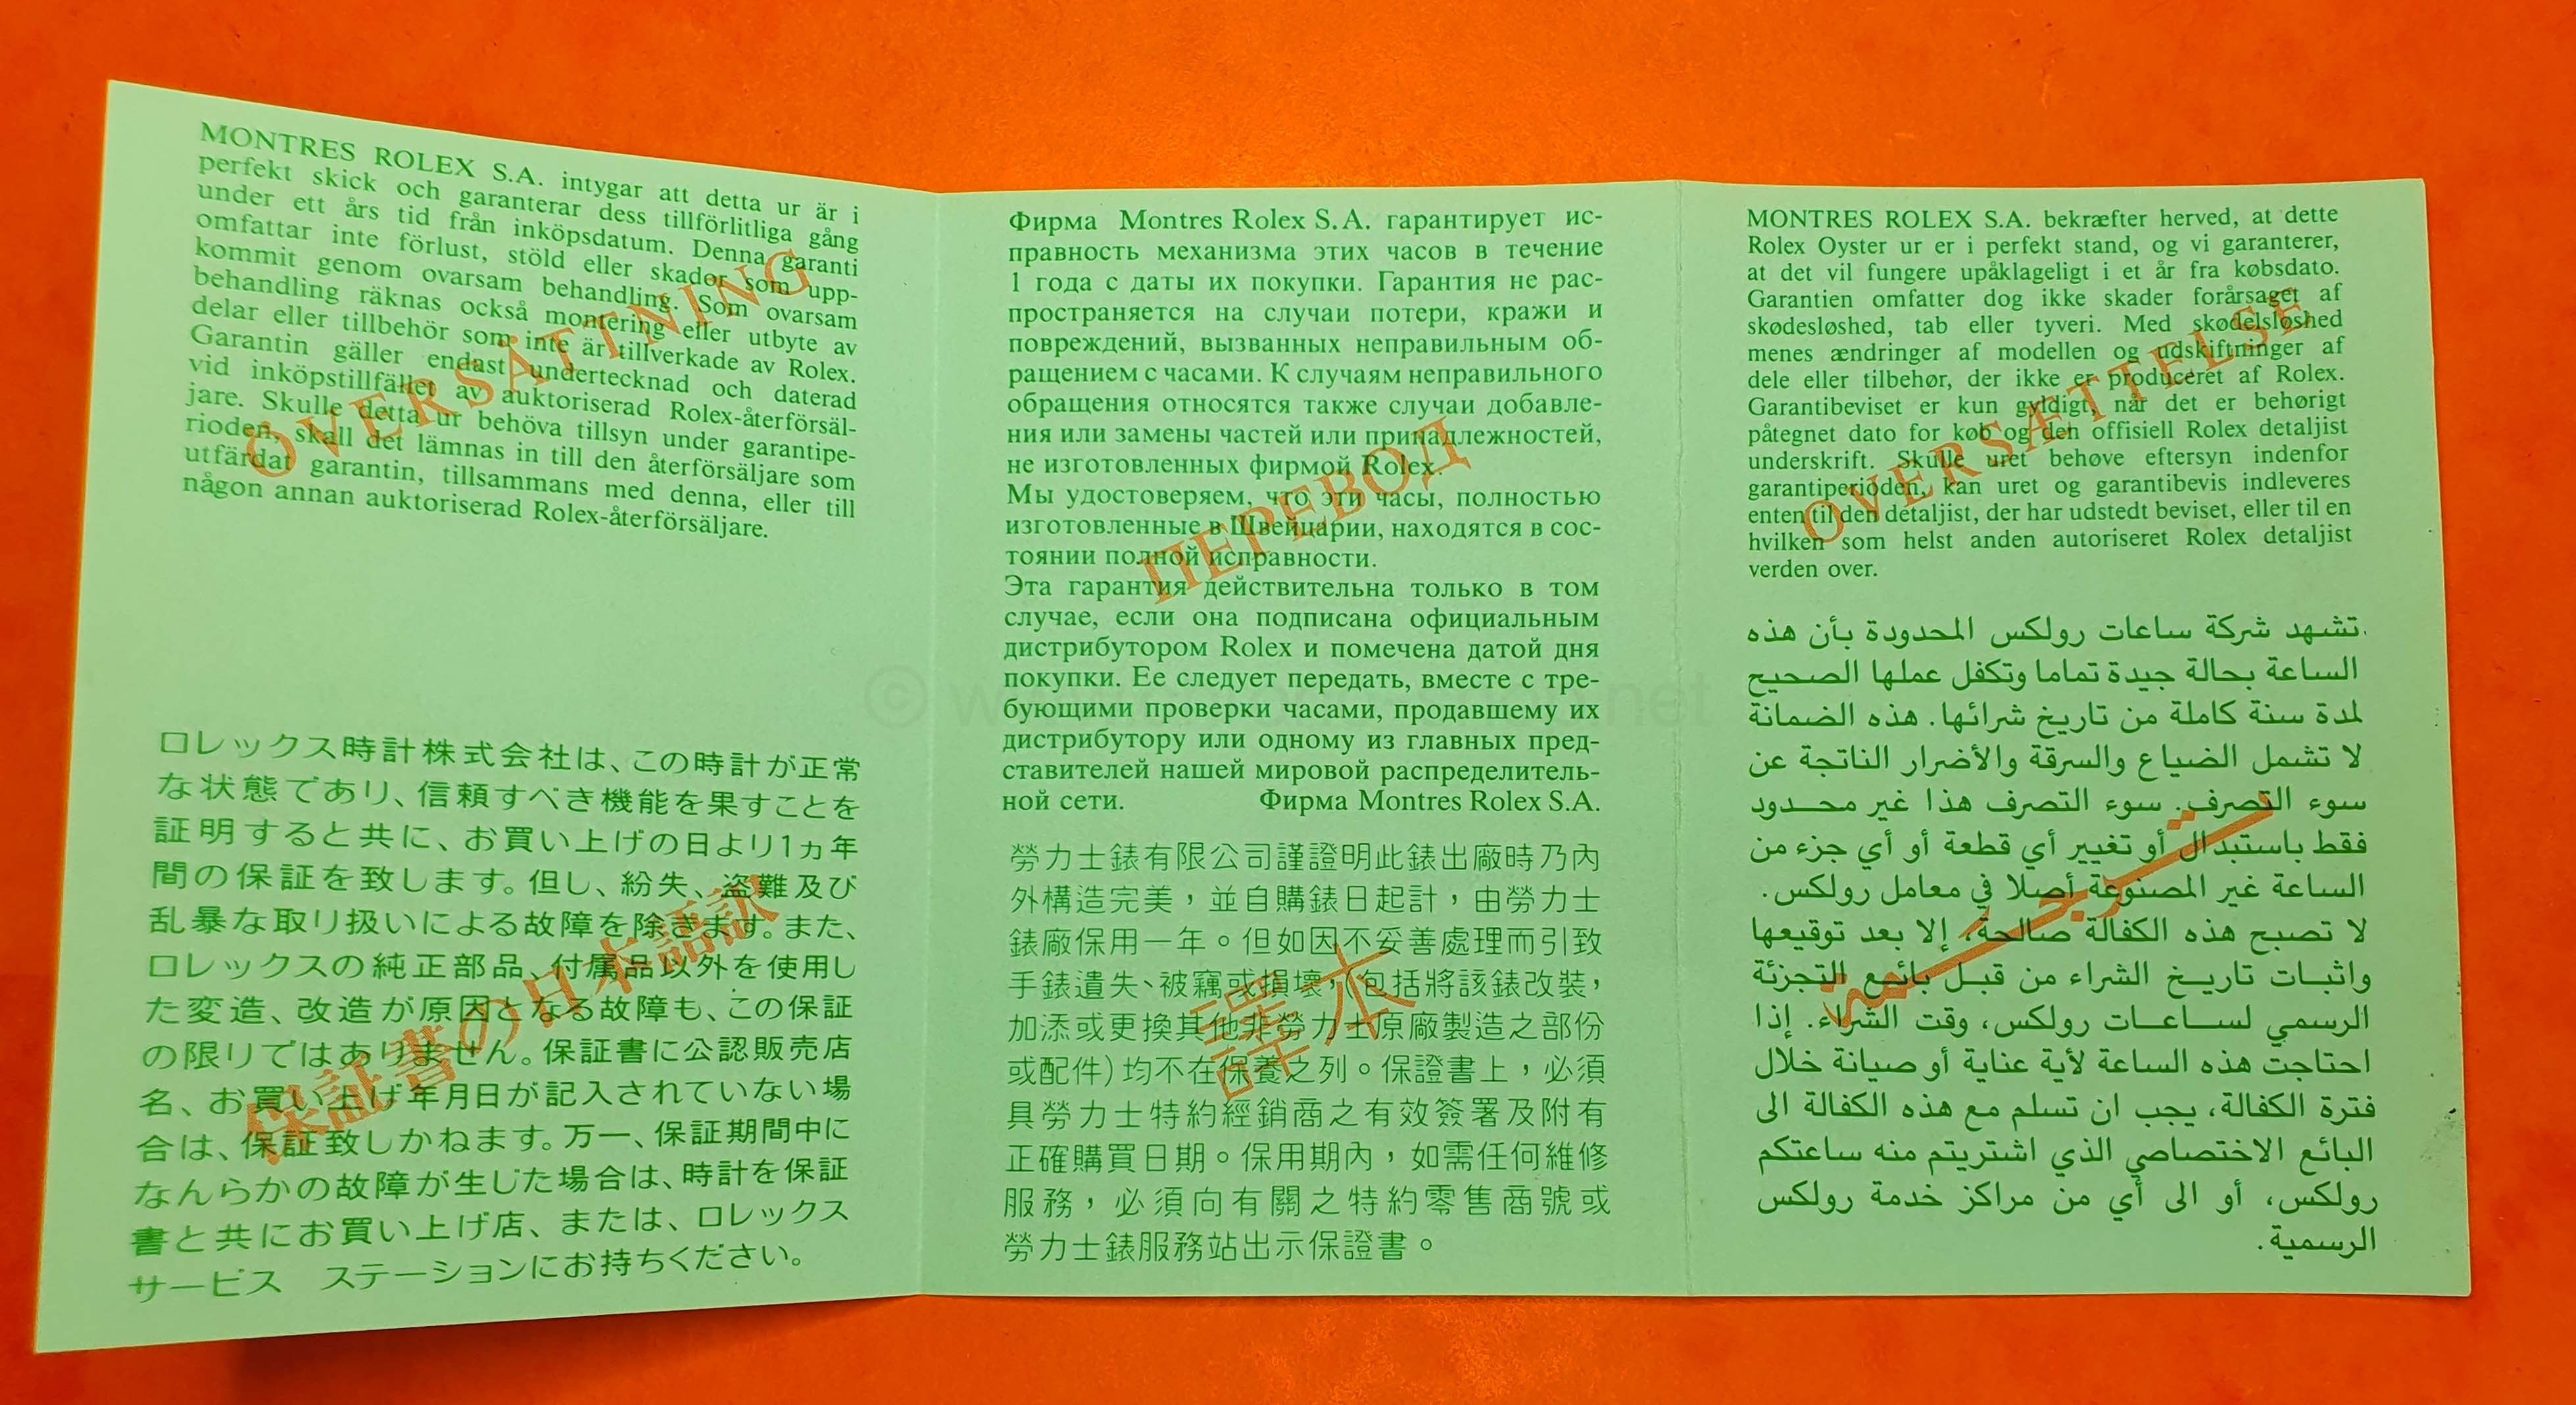 MONTRES ROLEX S.A. intygar att detta ur är i
perfekt skick och garanterar dess tillförlitliga gång
under ett års tid från inköpsdatum. Denna garanti
omfattar inte förlust, stöld eller skador som upp-
kommit genom ovarsam behandling. Som ovarsam
behandling räknas också montering eller utbyte av
delar eller tillbehör som inte är tillverkade av Rolex.
Garantin gäller endast undertecknad och daterad
vid inköpstillfället av auktoriserad Rolex-återförsäl-
jare. Skulle detta ur behöva tillsyn under garantipe-
rioden, skall det lämnas in till den återförsäljare som
utfärdat garantin, tillsammans med denna, eller till
någon annan auktoriserad Rolex-återförsäljare.
ÖVERSÄTTNING
ロレックス時計株式会社は、この時計が正常
な状態であり、信頼すべき機能を果すことを
証明すると共に、お買い上げの日より1ヵ年
間の保証を致します。但し、紛失、盗難及び
乱暴な取り扱いによる故障を除きます。また、
ロレックスの純正部品、付属品以外を使用し
た変造、改造が原因となる故障も、この保証
の限りではありません。保証書に公認販売店
名、お買い上げ年月日が記入されていない場
合は、保証致しかねます。万一、保証期間中に
なんらかの故障が生じた場合は、時計を保証
書と共にお買い上げ店、または、ロレックス
サービス ステーションにお持ちください。
保証書の日本語訳
Фирма Montres Rolex S.A. гарантирует ис-
правность механизма этих часов в течение
1 года с даты их покупки. Гарантия не рас-
пространяется на случаи потери, кражи и
повреждений, вызванных неправильным об-
ращением с часами. К случаям неправильного
обращения относятся также случаи добавле-
ния или замены частей или принадлежностей,
не изготовленных фирмой Rolex.
Мы удостоверяем, что эти часы, полностью
изготовленные в Швейцарии, находятся в сос-
тоянии полной исправности.
Эта гарантия действительна только в том
случае, если она подписана официальным
дистрибутором Rolex и помечена датой дня
покупки. Ее следует передать, вместе с тре-
бующими проверки часами, продавшему их
дистрибутору или одному из главных пред-
ставителей нашей мировой распределитель-
ной сети. Фирма Montres Rolex S.A.
ПЕРЕВОД
勞力士錶有限公司謹證明此錶出廠時乃內
外構造完美，並自購錶日起計，由勞力士
錶廠保用一年。但如因不妥善處理而引致
手錶遺失、被竊或損壞，(包括將該錶改裝，
加添或更換其他非勞力士原廠製造之部份
或配件)均不在保養之列。保證書上，必須
具勞力士特約經銷商之有效簽署及附有
正確購買日期。保用期內，如需任何維修
服務，必須向有關之特約零售商號或
勞力士錶服務站出示保證書。
譯本
MONTRES ROLEX S.A. bekræfter herved, at dette
Rolex Oyster ur er i perfekt stand, og vi garanterer,
at det vil fungere upåklageligt i et år fra købsdato.
Garantien omfatter dog ikke skader forårsaget af
skødesløshed, tab eller tyveri. Med skødelsløshed
menes ændringer af modellen og udskiftninger af
dele eller tilbehør, der ikke er produceret af Rolex.
Garantibeviset er kun gyldigt, når det er behørigt
påtegnet dato for køb og den offisiell Rolex detaljist
underskrift. Skulle uret behøve eftersyn indenfor
garantiperioden, kan uret og garantibevis indleveres
enten til den detaljist, der har udstedt beviset, eller til en
hvilken som helst anden autoriseret Rolex detaljist
verden over.
OVERSÆTTELSE
تشهد شركة ساعات رولكس المحدودة بأن هذه
الساعة بحالة جيدة تماما وتكفل عملها الصحيح
لمدة سنة كاملة من تاريخ شرائها. هذه الضمانة
لا تشمل الضياع والسرقة والأضرار الناتجة عن
سوء التصرف. سوء التصرف هذا غير محدود
فقط باستبدال أو تغيير أي قطعة أو أي جزء من
الساعة غير المصنوعة أصلا في معامل رولكس.
لا تصبح هذه الكفالة صالحة، إلا بعد توقيعها
واثبات تاريخ الشراء من قبل بائع التجزئة
الرسمي لساعات رولكس، وقت الشراء. إذا
احتاجت هذه الساعة لأية عناية أو صيانة خلال
فترة الكفالة، يجب ان تسلم مع هذه الكفالة الى
البائع الاختصاصي الذي اشتريتم منه ساعتكم
رولكس، أو الى أي من مراكز خدمة رولكس
الرسمية.
ترجمة